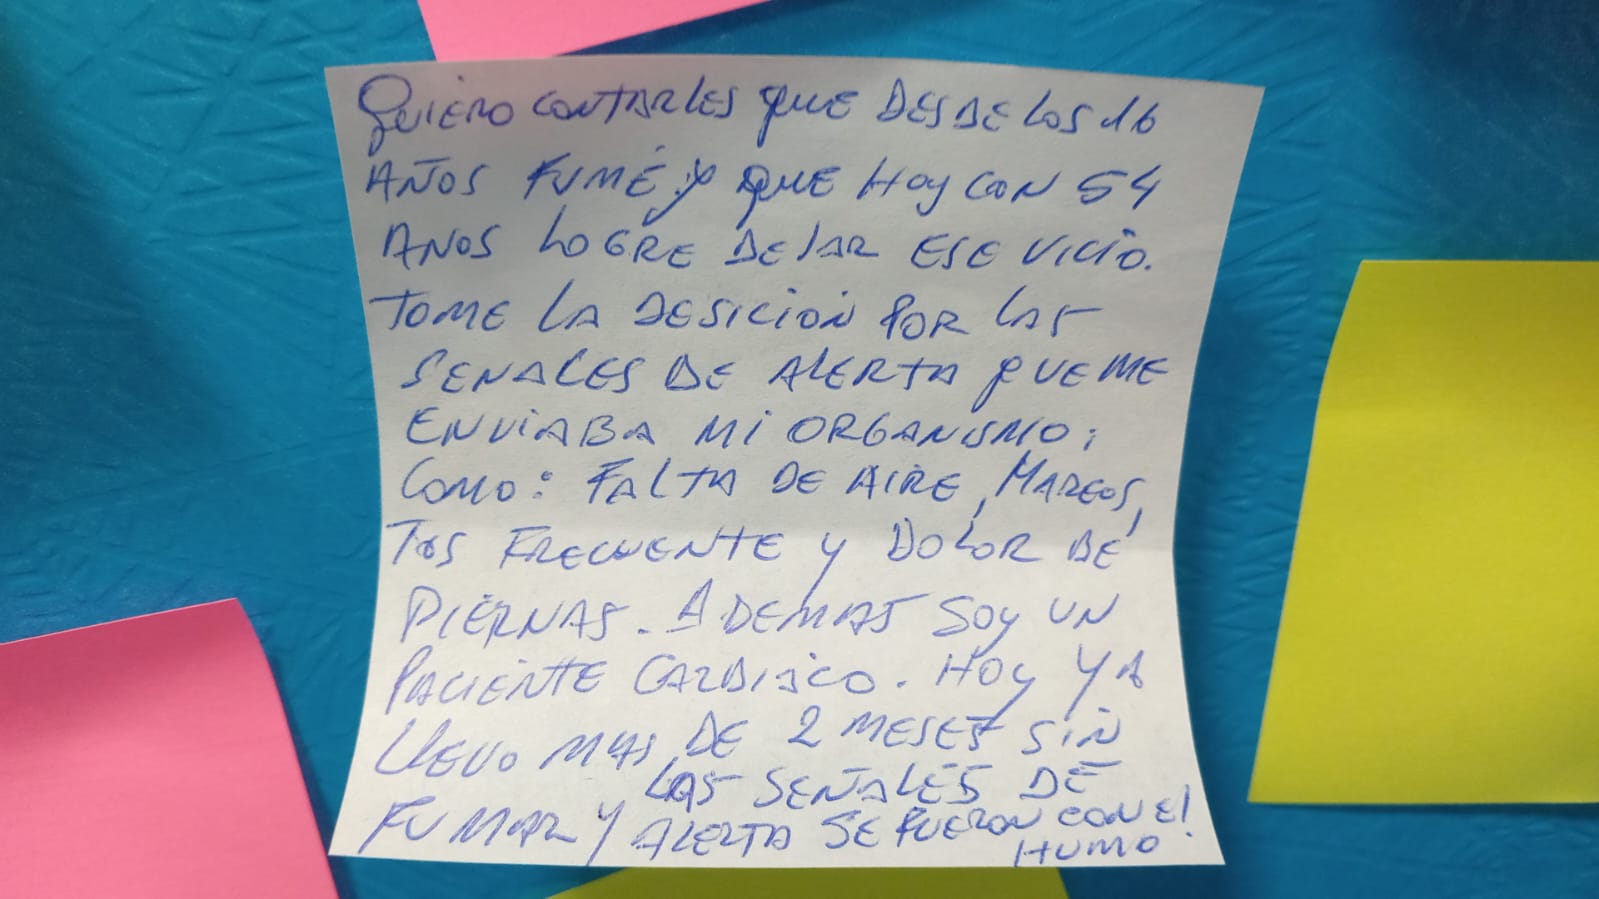 QUIERO CONTARLES QUE DESDE LOS 16
AÑOS FUMÉ y QUE HOY CON 54
AÑOS LOGRE DEJAR ESE VICIO.
TOME LA DESICION POR LAS
SEÑALES DE ALERTA QUE ME
ENVIABA MI ORGANISMO;
COMO: FALTA DE AIRE, MAREOS,
TOS FRECUENTE y DOLOR DE
PIERNAS. ADEMAS SOY UN
PACIENTE CARDIACO. HOY YA
LLEVO MAS DE 2 MESES SIN
FUMAR Y LAS SEÑALES DE
ALERTA SE FUERON CON El
HUMO